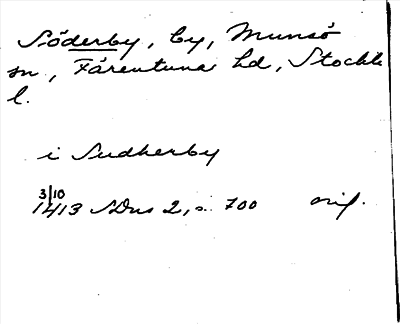 Söderby, by, Munsö
sn, Färentuna hd, Stockh
l.
i Sudherby
3/10
1413 SDns 2, s. 700 orig.